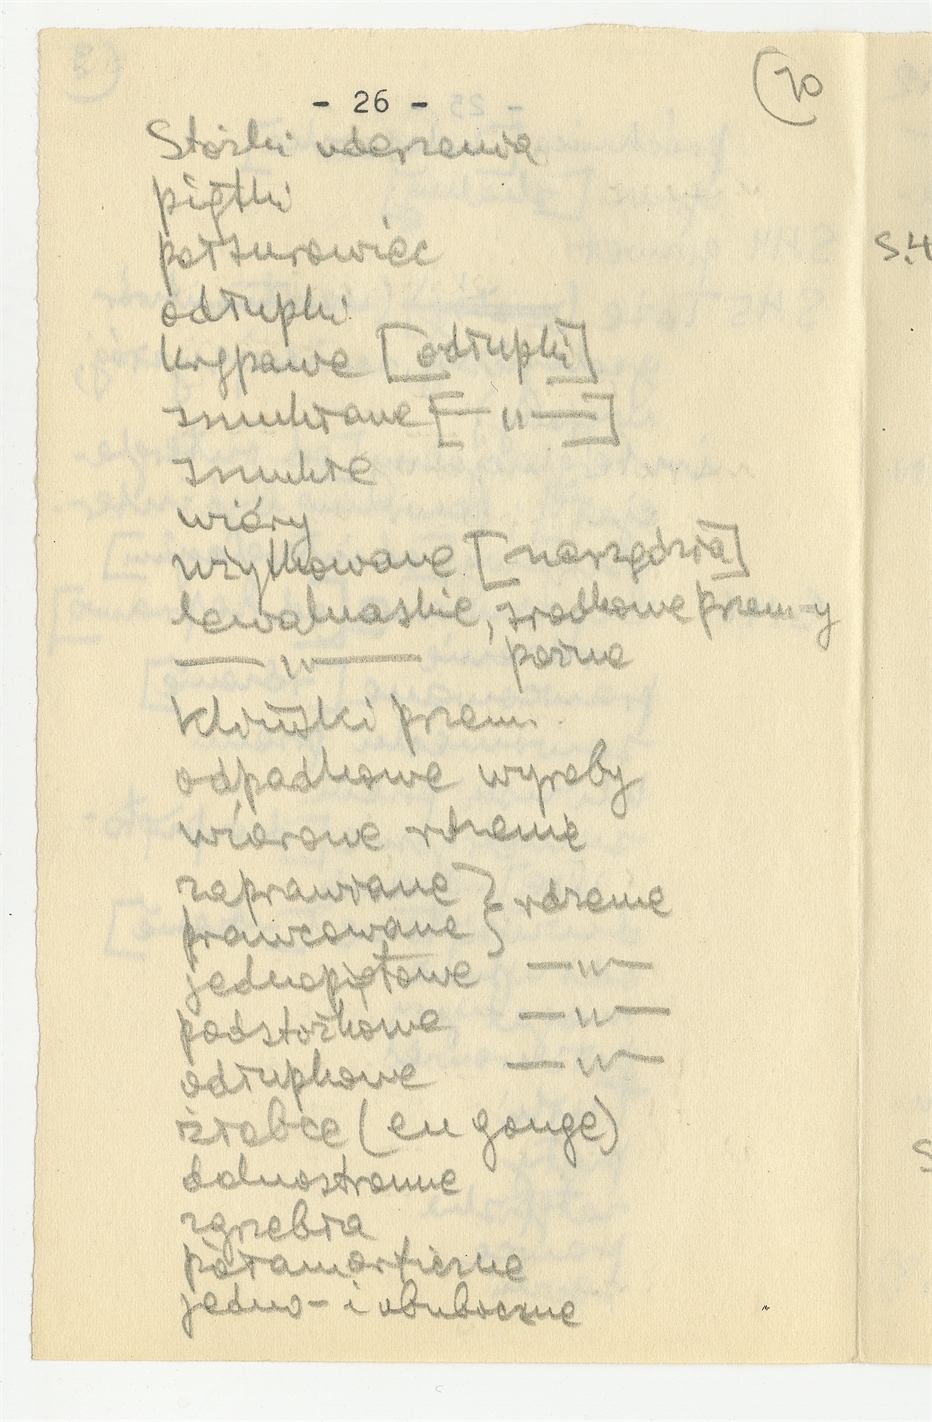 - 26 -
70
Stożki uderzenia
piętki
półsurowiec
odłupki
krępawe [odłupki]
smukławe [—"—]
smukłe
wióry
użytkowane [narzędzia]
lewaluaskie, środkowe przem-y
—"— późne
S.4
kliniżki przem.
odpadkowe wyroby
wiórowe rdzenie
zaprawiane } rdzenie
prawcowane
jednopiętowe —"—
podstożkowe —"—
odłupkowe —"—
żłobce (en gouge)
dolnostronne
zgrzebła
półamorficzne
jedno- i obuboczne